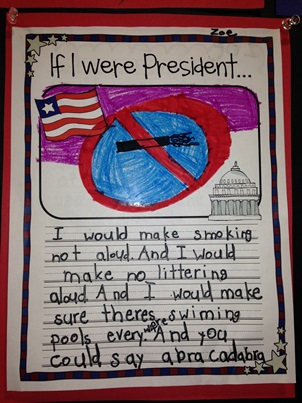 Zoe
If I were President...
I would make smoking
not aloud. And I would
make no littering
aloud. And I would make
sure theres swiming
pools every where. And you
could say abracadabra